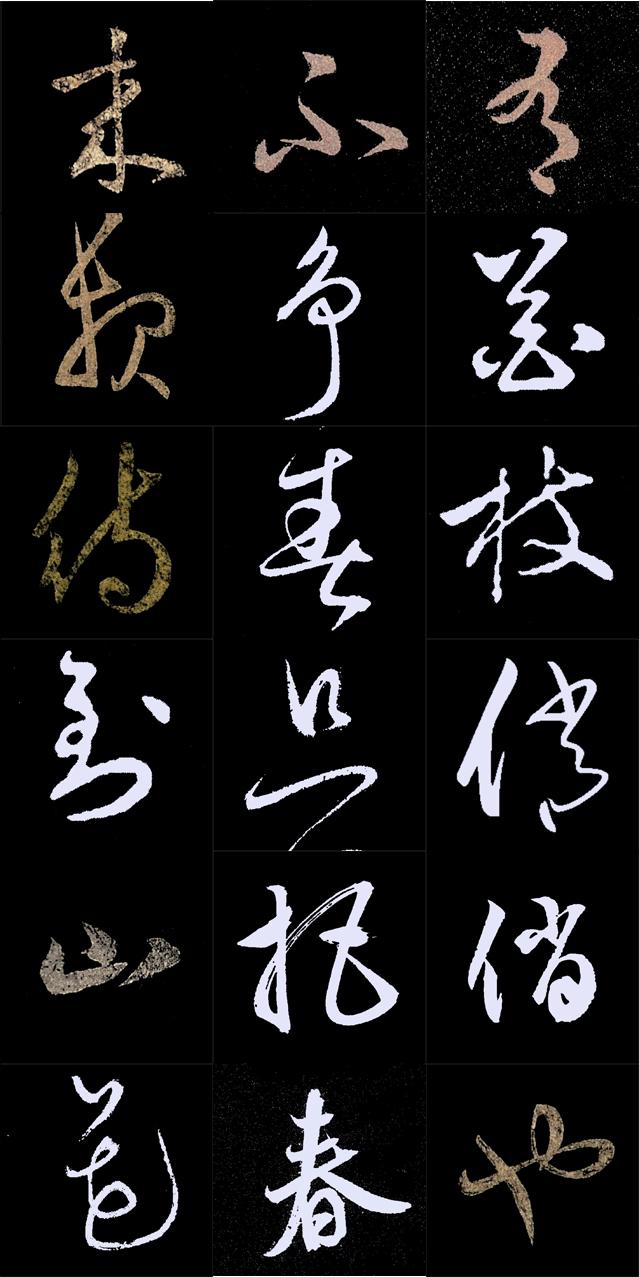 有花枝俏俏也
不争春只把春
来报待到山花